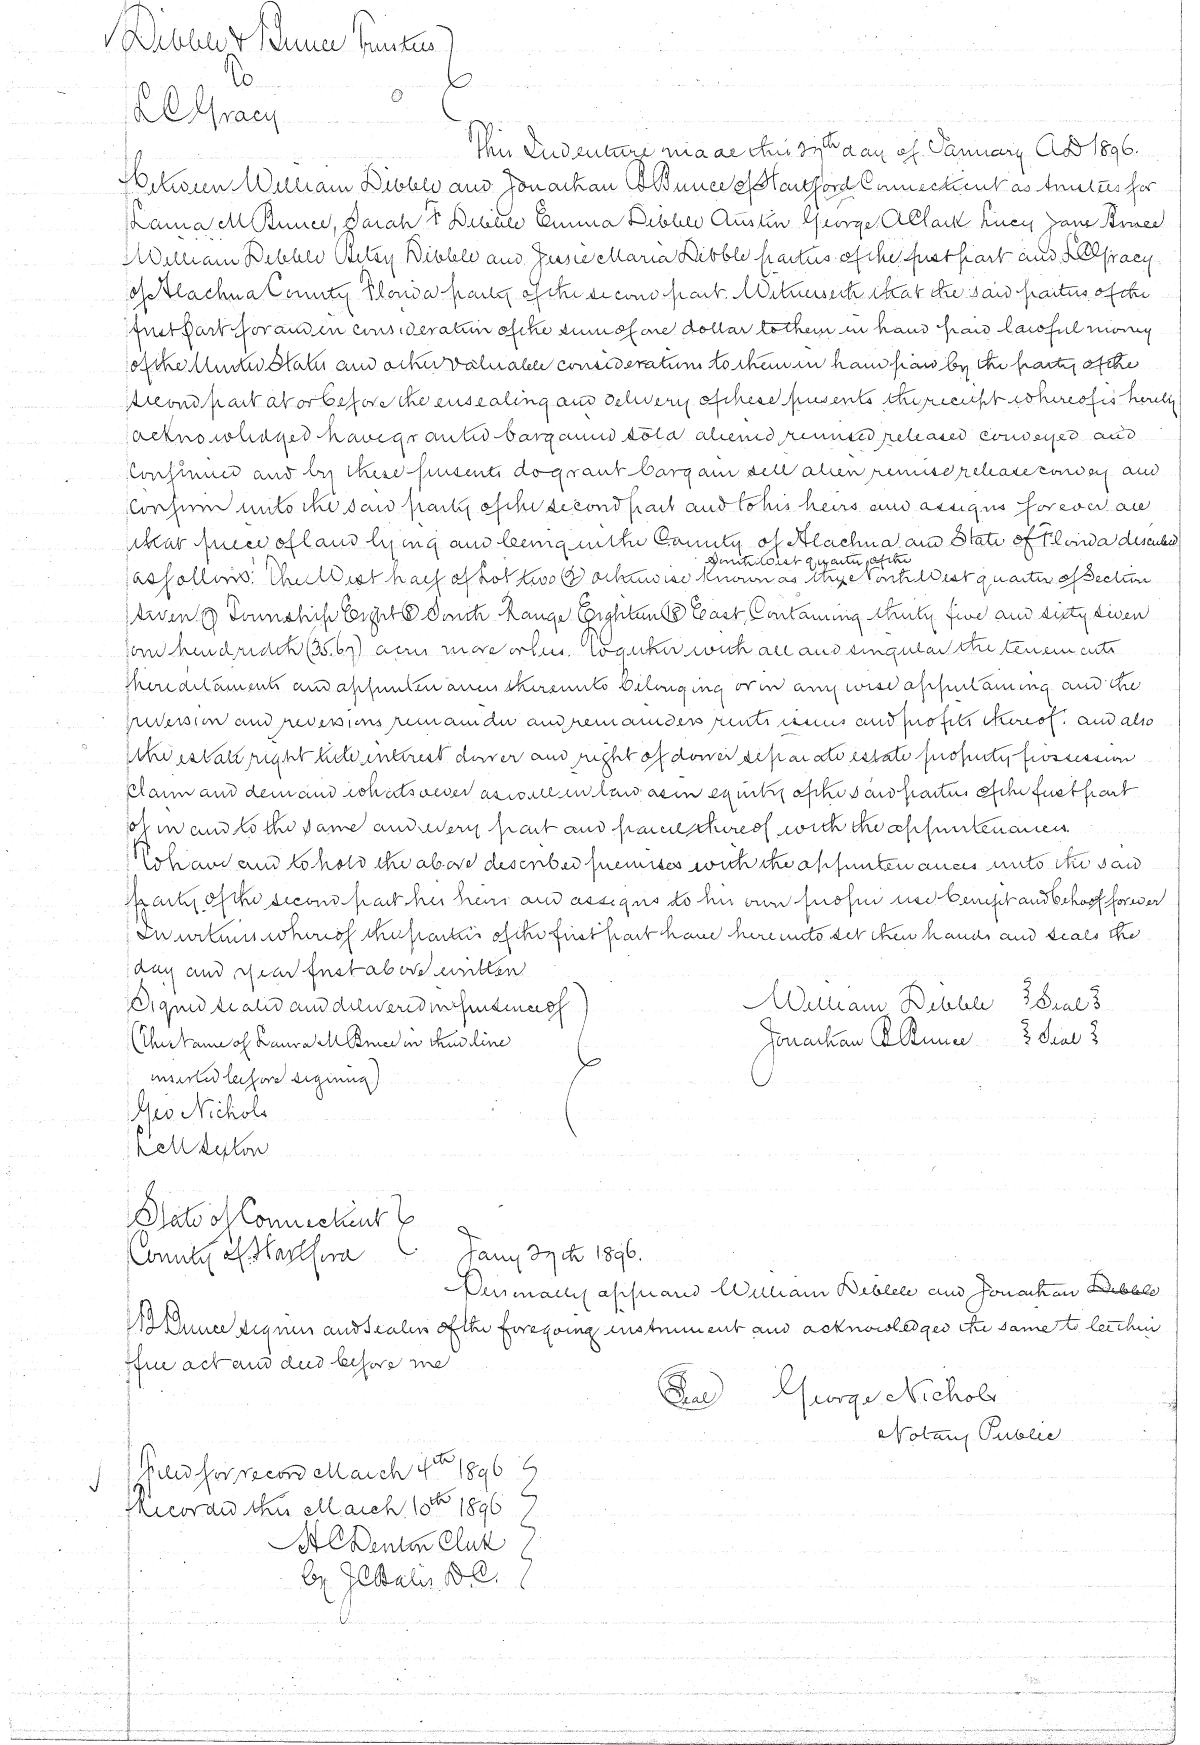 Dibble & Bunce Trustees
To
L C Gracy
This Indenture made this 27th day of January AD 1896.
between William Dibble and Jonathan B Bunce of Hartford Connecticut as trustees for
Laura M Bunce, Sarah F Dibble Emma Dibble Austin George A Clark Lucy Jane Bunce
William Dibble Betsy Dibble and Jessie Maria Dibble parties of the first part and L C Gracy
of Alachua County Florida party of the second part. Witnesseth that the said parties of the
first part for and in consideration of the sum of one dollar to them in hand paid lawful money
of the United States and other valuable considerations to them in hand paid by the party of the
second part at or before the ensealing and delivery of these presents the receipt whereof is hereby
acknowledged have granted bargained sold aliened remised released conveyed and
confirmed and by these presents do grant bargain sell alien remise release convey and
confirm unto the said party of the second part and to his heirs and assigns forever all
that piece of land lying and being in the County of Alachua and State of Florida described
South West quarter of the
as follows: The West half of Lot two (2) otherwise known as the North West quarter of Section
seven (7) Township Eight (8) South Range Eighteen (18) East, Containing thirty five and sixty seven
one hendredth (35.67) acres more or less. Together with all and singular the tenements
hereditaments and appurtenances thereunto belonging or in any wise appertaining and the
reversion and reversions remainder and remainders rents issues and profits thereof. and also
the estate right title interest dower and right of dower separate estate property possession
claim and demand whatsoever as well in law as in equity of the said parties of the first part
of in and to the same and every part and parcel thereof with the appurtenances.
To have and to hold the above described premises with the appurtenances unto the said
party of the second part his heirs and assigns to his own proper use benefit and behoof forever
In witness whereof the parties of the first part have hereunto set their hands and seals the
day and year first above written
Signed sealed and delivered in presence of
William Dibble {Seal}
(The Name of Laura M Bunce in third line
Jonathan B Bunce {Seal}
inserted before signing)
Geo Nichols
L M Sexton
State of Connecticut
County of Hartford Jany 27th 1896.
Personally appeared William Dibble and Jonathan Dibble
B Bunce signers and sealers of the foregoing instrument and acknowledged the same to be their
free act and deed before me
(Seal) George Nichols
Notary Public
Filed for record March 4th 1896
Recorded this March 10th 1896
H C Denton Clerk
by J C D.C.